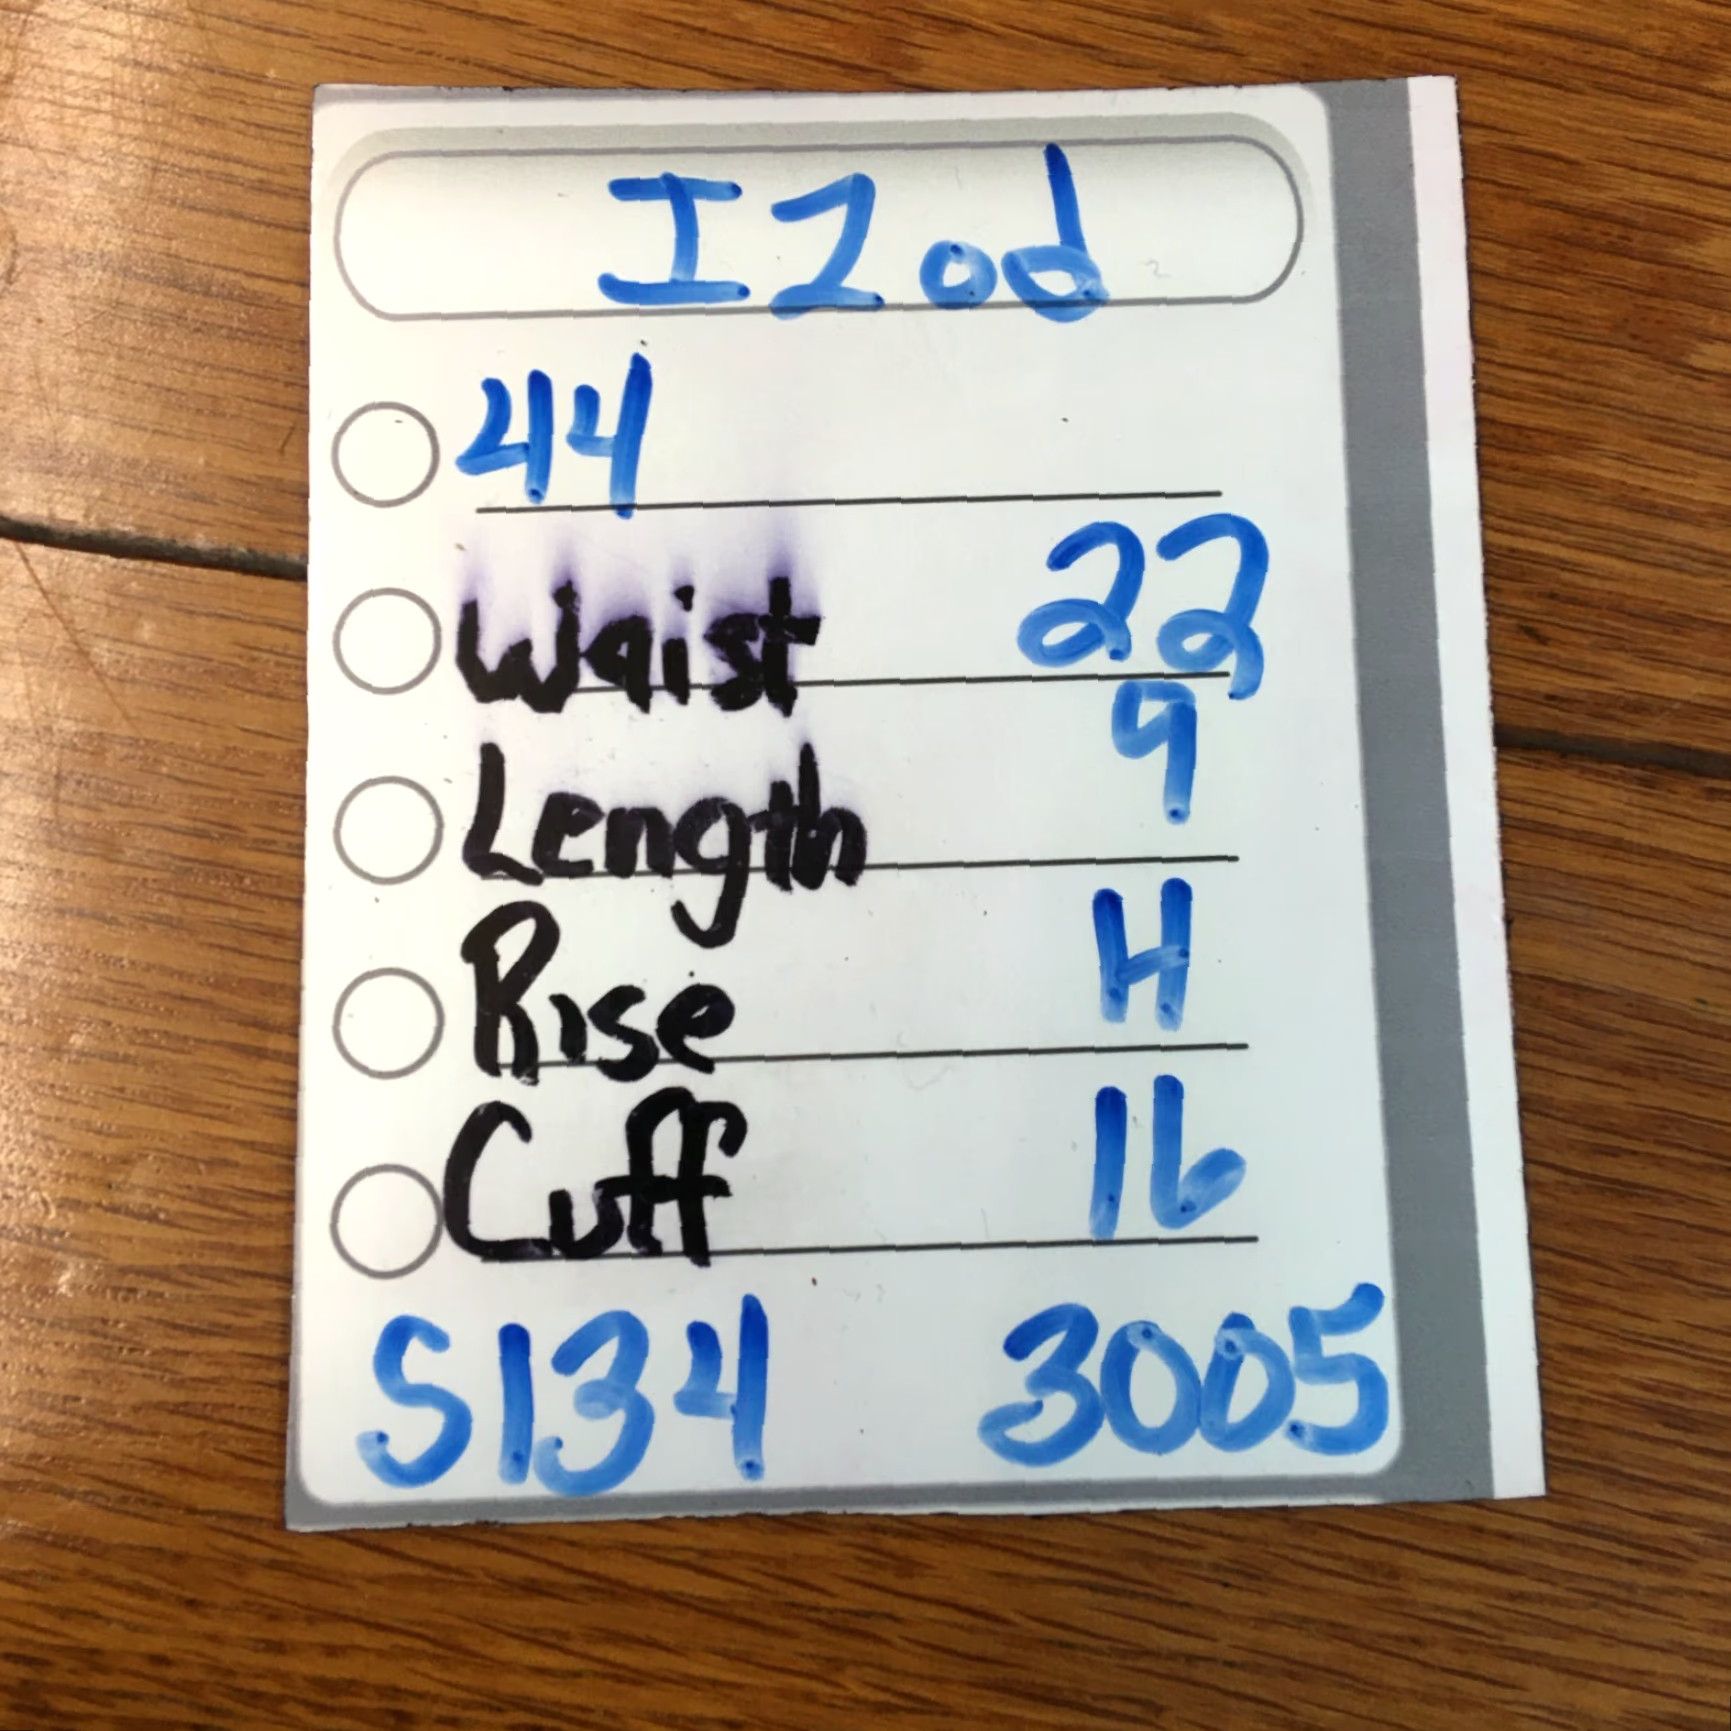 IZod
44
Waist 22
Length 9
Rise H
Cuff 16
S134 3005